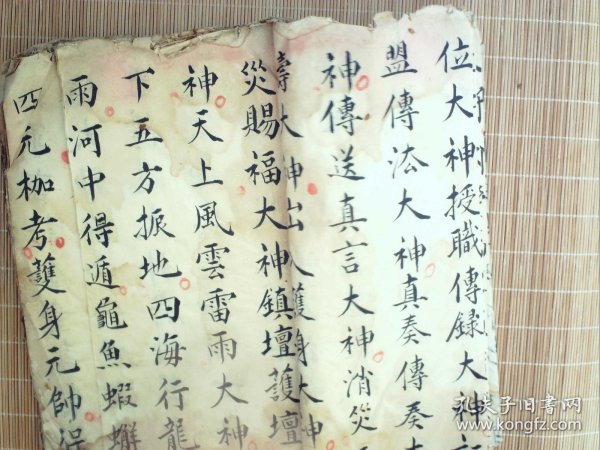 位大神授職傳録大神
盟傳法大神真奏傳奏
神傳送真言大神消災
大神出入護身大神
災賜福大神鎮壇護壇
神天上風雲雷雨大神
下五方振地四海行龍
雨河中得遁龜魚蝦蠏
四元枷考護身元帥
孔夫子旧书网
www.kongfz.com